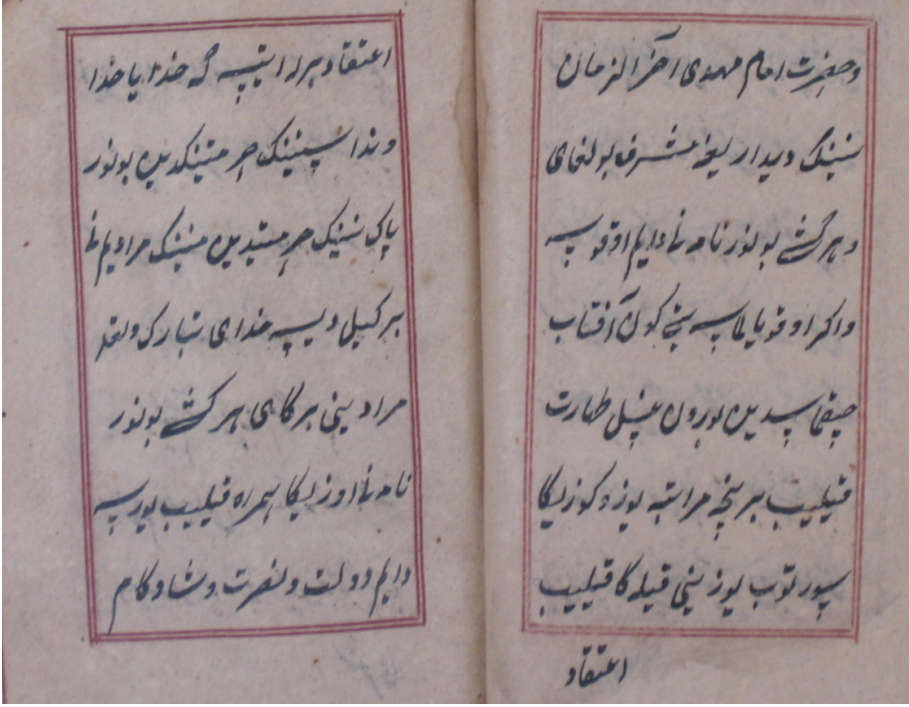 و حضرت امام مهدی آخر الزمان
نینک دیداریغه مشرف بولغای
و هر کشی بو نور نامه نی دایم اوقوسه
و اکر اوقویالماسه پنج کون آفتاب
چیقماسدین بورون غسل طهارت
قیلیب بر نچه مراتبه یوز و کوزلیکا
سورتوب یوزینی قبله کا قیلیب
اعتقاد
اعتقاد برله ایتسه که خدایا خدا
وندا سینینک حرمتینکدین بو نور
پاک نینک حرمتیدین مینینک مرادیم نی
برکیل دیسه خدای تبارک و تعالی
مرادینی برکای هر کشی بو نور
نامه نی اوزیکا همراه قیلیب یورسه
دایم دولت و نصرت و شاد کام